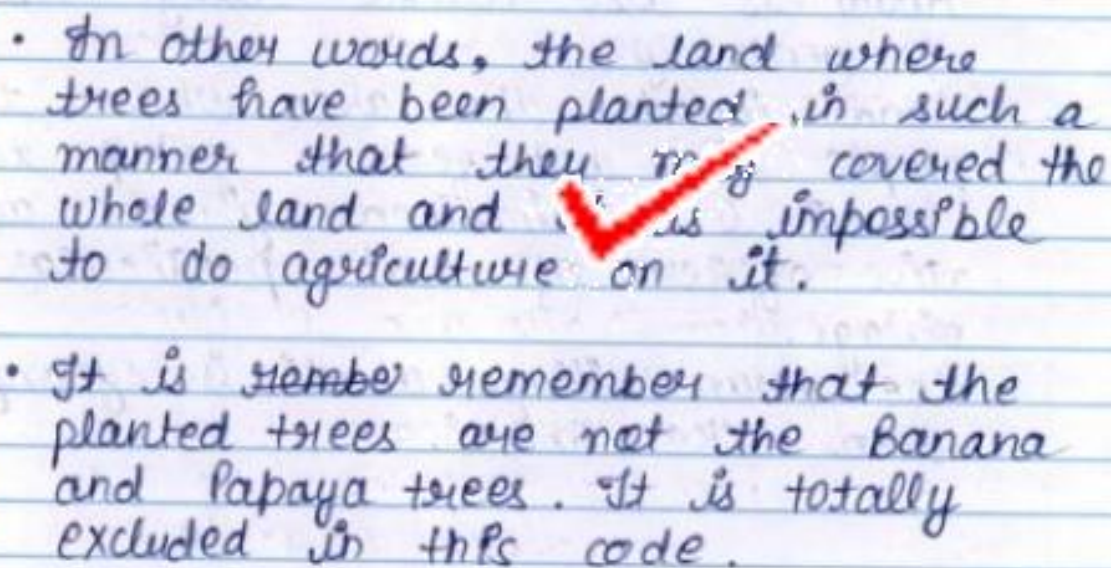 • In other words, the land where
trees have been planted in such a
manner that they may covered the
whole land and is impossible
to do agriculture on it.
• It is rembe remember that the
planted trees are not the Banana
and Papaya trees. It is totally
excluded in this code.